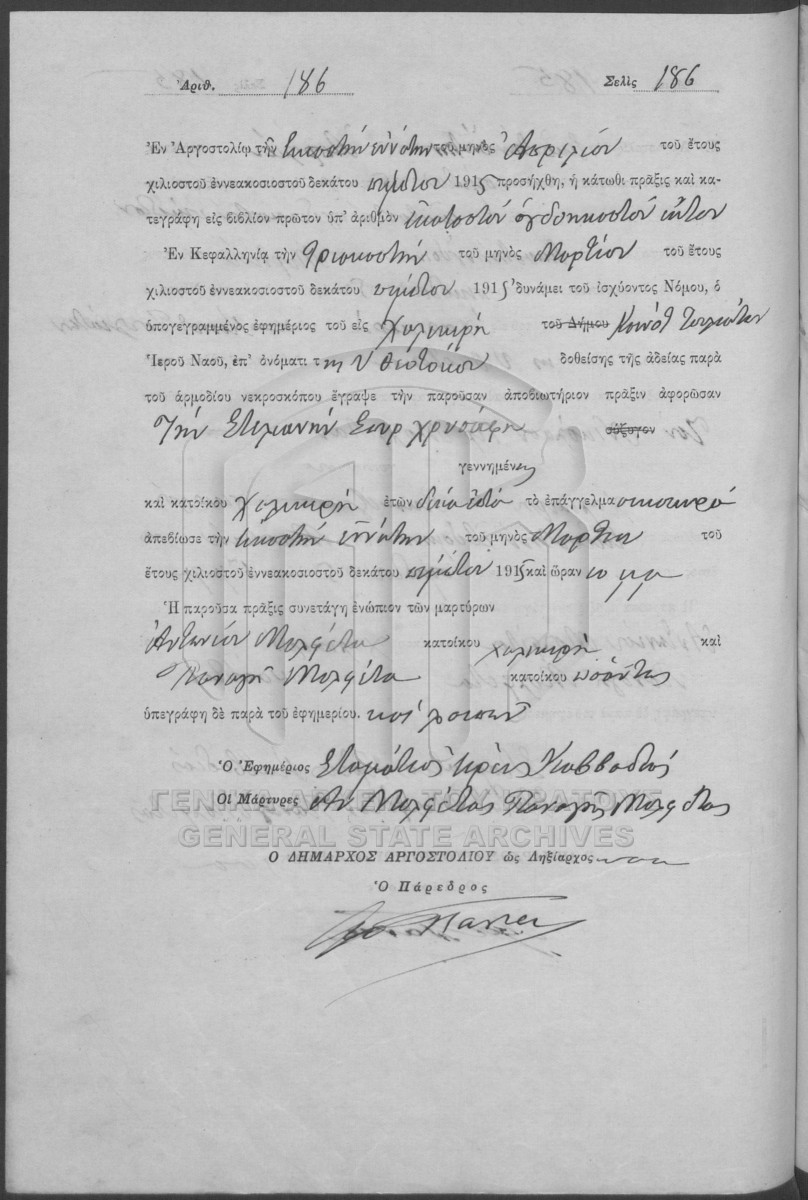 Ἀριθ. 186 Σελὶς 186
Ἐν Ἀργοστολίῳ τὴν εἰκοστὴν ἐννάτην τοῦ μηνὸς Ἀπριλίου τοῦ ἔτους
χιλιοστοῦ ἐννεακοσιοστοῦ δεκάτου πέμπτου 1915 προσήχθη, ἡ κάτωθι πρᾶξις καὶ κα-
τεγράφη εἰς βιβλίον πρῶτον ὑπ' ἀριθμὸν ἑκατοστὸν ὀγδοηκοστὸν ἕκτον
Ἐν Κεφαλληνίᾳ τὴν τριακοστὴν τοῦ μηνὸς Μαρτίου τοῦ ἔτους
χιλιοστοῦ ἐννεακοσιοστοῦ δεκάτου πέμπτου 1915 δυνάμει τοῦ ἰσχύοντος Νόμου, ὁ
ὑπογεγραμμένος ἐφημέριος τοῦ εἰς Χαλικερῆ τοῦ Δήμου Κοινότ
Ἱεροῦ Ναοῦ, ἐπ' ὀνόματι τῆς Υ Θεοτόκου δοθείσης τῆς ἀδείας παρὰ
τοῦ ἁρμοδίου νεκροσκόπου ἔγραψε τὴν παροῦσαν ἀποβιωτήριον πρᾶξιν ἀφορῶσαν
Τὴν Στυλιανὴν Σπυρ Χρυσάφη σύζυγον
γεννημένης
καὶ κατοίκου Χαλικερῆ ἐτῶν δέκα ἑπτὰ τὸ ἐπάγγελμα οἰκοκυρά
ἀπεβίωσε τὴν εἰκοστὴν ἐννάτην τοῦ μηνὸς Μαρτίου τοῦ
ἔτους χιλιοστοῦ ἐννεακοσιοστοῦ δεκάτου πέμπτου 1915 καὶ ὥραν 10 μμ
Ἡ παροῦσα πρᾶξις συνετάγη ἐνώπιον τῶν μαρτύρων
Ἀντωνίου Μολφέτα κατοίκου Χαλικερῆ καὶ
Παναγῆ Μολφέτα κατοίκου ὡσαύτως
ὑπεγράφη δὲ παρὰ τοῦ ἐφημερίου. καὶ λοιπῶν
Ὁ Ἐφημέριος Σταμάτιος ἱερεὺς Καββαδίας
Οἱ Μάρτυρες Αν Μολφέτας Παναγῆς Μολφέτας
ΓΕΝΙΚΑ ΑΡΧΕΙΑ ΤΟΥ ΚΡΑΤΟΥΣ
GENERAL STATE ARCHIVES
Ο ΔΗΜΑΡΧΟΣ ΑΡΓΟΣΤΟΛΙΟΥ ὡς Ληξίαρχος
Ὁ Πάρεδρος